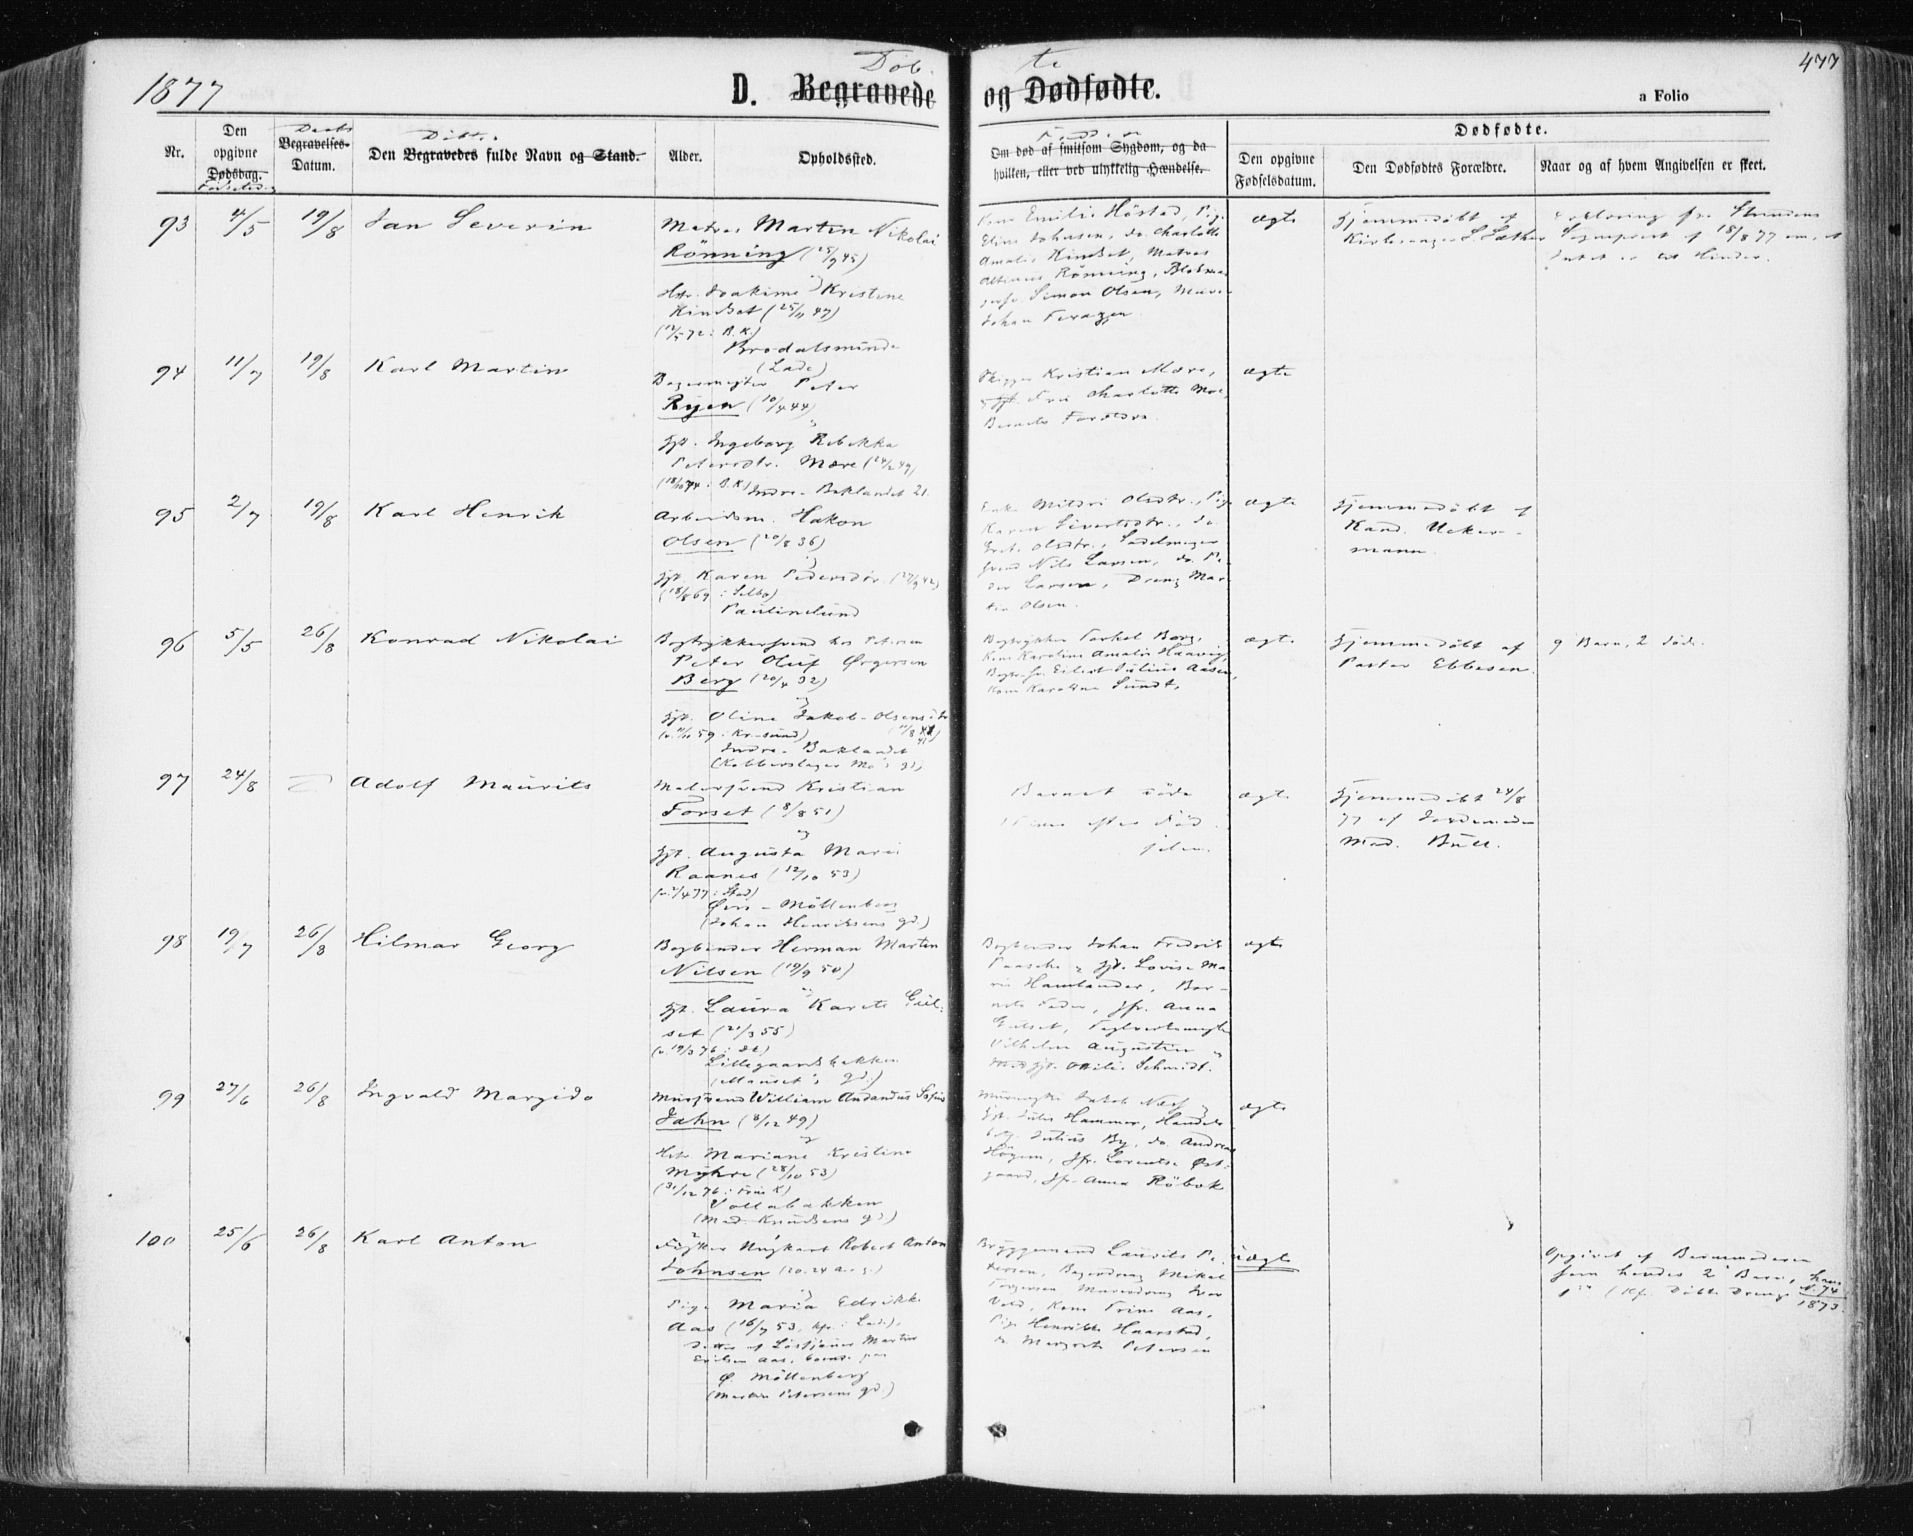 1877
Døb te
477
D. Begravede og Dødfødte.
a Folio
Nr.
Den opgivne Dødsdag.
Fødselsdag
Daabs
Begravelses-Datum.
Døbtes
Den Begravedes fulde Navn og Stand.
Alder.
Opholdssted.
Faddere
Om død af smitsom Sygdom, og da
hvilken, eller ved ulykkelig Hændelse.
Dødfødte.
Den opgivne Fødselsdatum.
Den Dødfødtes Forældre.
Naar og af hvem Angivelsen er skeet.
93 4/5 19/8 Jan Severin
Matros Martin Nikolai
Rönning (25/9 45)
og
Hstr. Joakime Kristine
Kindset (25/11 47)
(12/5 72 : B.K.)
Brodalsminde
(Lade)
Kone Emilie Höstad, Pige
Eline Johnsen, do. Charlotte
Amalie Kindset, Matros
Rönning,
Simon Olsen,
Johan Feragen.
ægte
Hjemmedøbt af
Kirkesanger S. Sæther
Erklæring fra Strindens
Sogneprest af 18/8 77 om, at
Intet er til Hinder.
94 11/7 19/8 Karl Martin
Bagermester Peter
Ryen (10/4 44)
og
Hst. Ingeborg Rebekka
Petersdtr. Mære (24/2 49)
(18/10 74 : B.K.) Indre-Baklandet 21.
Skipper Kristian Mære,
Frue Charlotte
Barnets Forældre.
ægte
95 2/7 19/8 Karl Henrik
Arbeidsm. Hakon
Olsen (20/8 36)
Hst. Karen Pedersdtr. (27/9 42)
(18/8 69 : Selbo)
Paulinelund
Enke Mildri Olsdtr., Pige
Karen Sivertsdtr., do
Gret. Olsdtr., Sadelmager
svend Nils Larsen, do. Pe-
der Larsen, Dreng Mar-
tin Olsen.
ægte
Hjemmedøbt af
Kand. Ucker-
mann.
96 5/5 26/8 Konrad Nikolai
Bogtrykkersvend hos Petersen
Peter Oluf Ørgersen
Berg (20/4 32)
og
Hst. Oline Jakob-Olsensdtr
59 : Kr.sund)
Indre-Baklandet
(Kobberslager Mo's gd)
Bogtrykker Torkel Borg,
Kone Karoline Amalie Haavig,
Eilert Julius Aasen,
Kone Karoline Sundt,
ægte
Hjemmedøbt af
Pastor Ebbesen.
9 Børn, 2 døde.
97 24/8 Adolf Maurits
Malersvend Kristian
Forset (8/8 51)
og
Hst. Augusta Marie
Raanes (12/10 53)
77 : Stod)
Øvre-Möllenberg
(Johan Henriksens gd.)
Barnet døde
efter Fød-
selen.
ægte
Hjemmedöbt 24/8
77 af Jordemoder
Mad. Bull.
98 19/7 26/8 Hilmar Georg
Bogbinder Herman Martin
Nilsen (19/9 50)
og
Hst. Laura Karete Gul-
set (21/3 55)
(v. 19/3 76 : )
Lillegaardsbakken
(Mauset's gd.)
Bogbinder Johan Fredrik
Paasche og Hst. Lovise Ma-
rie Hamlander, Bar-
nets Fader, Jfr. Anna
Gulset,
Vilhelm Augustin og
Hst. Otilie Schmidt.
ægte
99 27/6 26/8 Ingvald Margido
Mursvend William Andandus Sofus
Jahn (8/12 49)
og
Hstr. Mariane Kristine
Myhre (28/10 53)
(31/12 76 : Frue K)
Vollabakken
(Mad. Knudsens gd)
Murmester Jakob Næss og
Hst. Julie Hammer, Handels
betj. Julius By, do. Andreas
Högem, Jfr. Lorentse Øst-
gaard, Jfr. Anna Röbek
ægte
100 25/6 26/8 Karl Anton
Ungkarl Robert Anton
Johnsen (20-24 Aar g.)
og
Pige Maria Edrikke
Aas (16/7 53, kfr. : Lade),
Datter af Losjgaver Martin
Eriksen Aas, boende paa
Ø. Möllenberg
(Martin Petersens gd.)
Bryggemand Laurits Pe-
tersen, Bagerdreng Mikal
Torgersen Murerdreng Ivar
Vold, Kone Trine Aas,
Pige Henrikke Haarstad,
do. Margrete Petersen
uægte
Opgivet af Barnemoderen
som hendes 2det Barn, hans
1ste (Kfr. Döbte Drenge No. 74
1873.